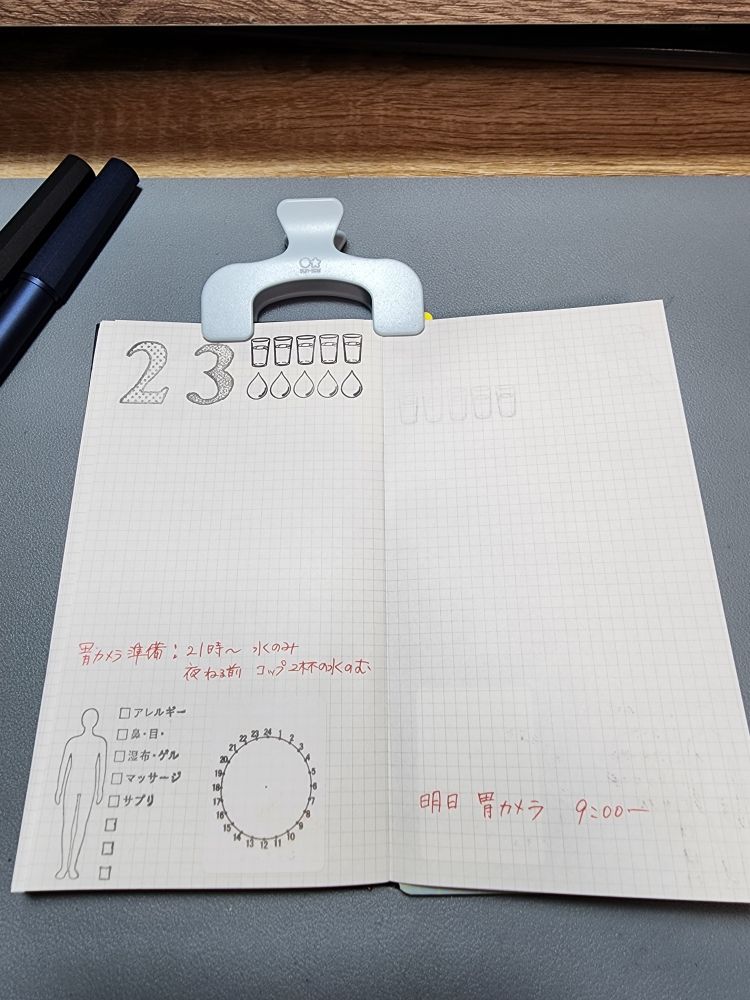 23
胃カメラ準備：21時〜 水のみ
夜ねる前 コップ2杯の水のむ
アレルギー
鼻・目・
湿布・ゲル
マッサージ
サプリ
24 1 2 3 4 5 6 7 8 9 10 11 12 13 14 15 16 17 18 19 20 21 22 23
明日 胃カメラ 9:00〜